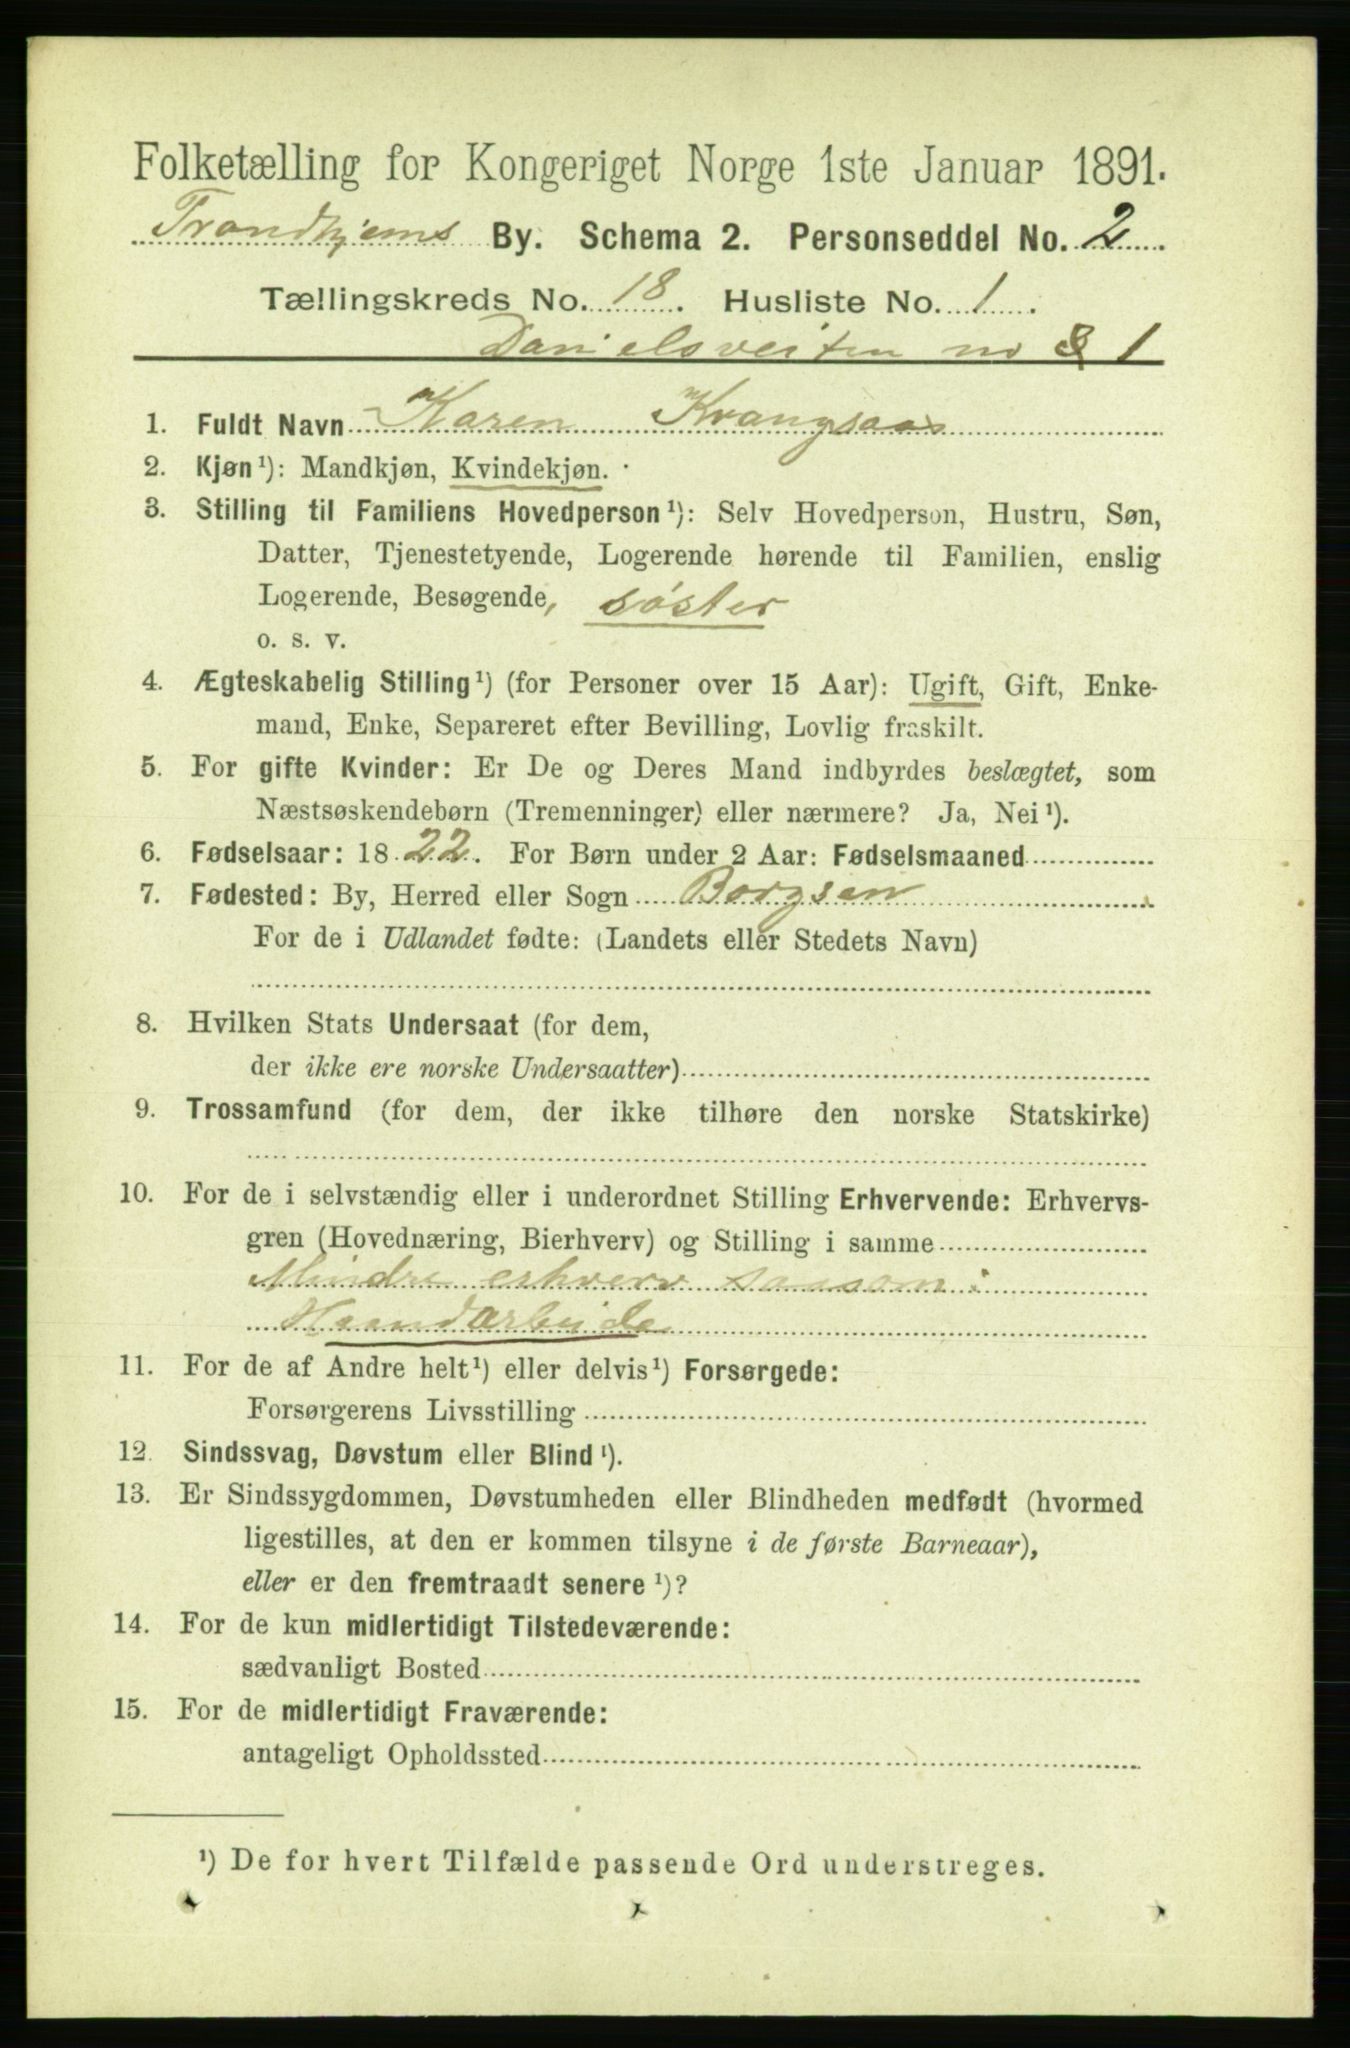 Folketælling for Kongeriget Norge 1ste Januar 1891.
Trondhjems By. Schema 2. Personseddel No. 2
Tællingskreds No. 18. Husliste No. 1.
Danielsveiten no 1
1. Fuldt Navn Karen Krangsaas
2. Kjøn ¹): Mandkjøn, Kvindekjøn.
3. Stilling til Familiens Hovedperson ¹): Selv Hovedperson, Hustru, Søn,
Datter, Tjenestetyende, Logerende hørende til Familien, enslig
Logerende, Besøgende, søster
o. s. v.
4. Ægteskabelig Stilling ¹) (for Personer over 15 Aar): Ugift, Gift, Enke-
mand, Enke, Separeret efter Bevilling, Lovlig fraskilt.
5. For gifte Kvinder: Er De og Deres Mand indbyrdes beslægtet, som
Næstsøskendebørn (Tremenninger) eller nærmere? Ja, Nei ¹).
6. Fødselsaar: 1822. For Børn under 2 Aar: Fødselsmaaned
7. Fødested: By, Herred eller Sogn Borgsen
For de i Udlandet fødte: (Landets eller Stedets Navn)
8. Hvilken Stats Undersaat (for dem,
der ikke ere norske Undersaatter)
9. Trossamfund (for dem, der ikke tilhøre den norske Statskirke)
10. For de i selvstændig eller i underordnet Stilling Erhvervende: Erhvervs-
gren (Hovednæring, Bierhverv) og Stilling i samme
Mindre erhverv saasom i
Haandarbeide
11. For de af Andre helt ¹) eller delvis ¹) Forsørgede:
Forsørgerens Livsstilling
12. Sindssvag, Døvstum eller Blind ¹).
13. Er Sindssygdommen, Døvstumheden eller Blindheden medfødt (hvormed
ligestilles, at den er kommen tilsyne i de første Barneaar),
eller er den fremtraadt senere ¹)?
14. For de kun midlertidigt Tilstedeværende:
sædvanligt Bosted
15. For de midlertidigt Fraværende:
antageligt Opholdssted
¹) De for hvert Tilfælde passende Ord understreges.